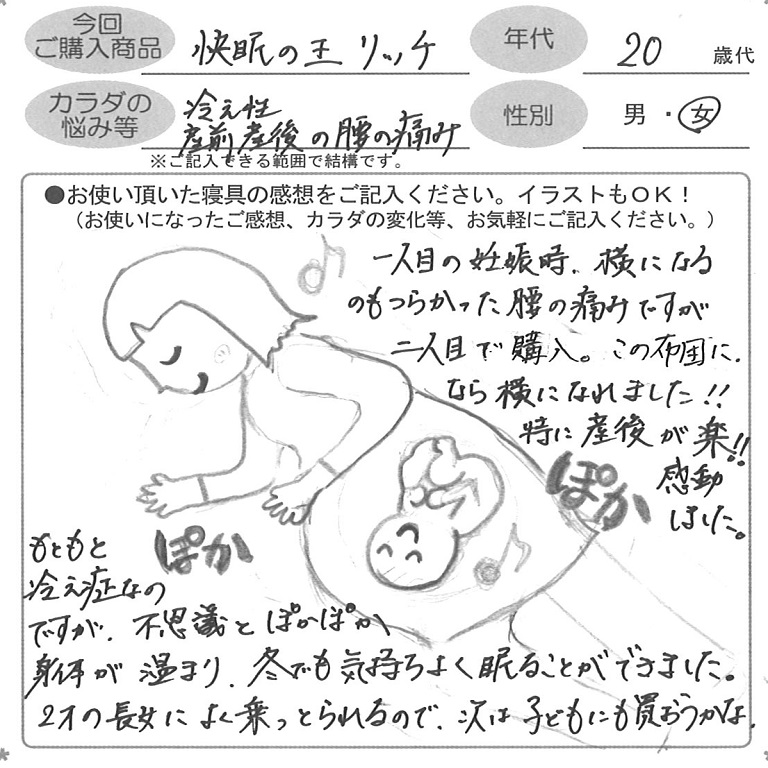 今回
ご購入商品
快眠の王 リッチ
年代
20 歳代
カラダの
悩み等
冷え性
産前産後の腰の痛み
性別
男・女
※ご記入できる範囲で結構です。
●お使い頂いた寝具の感想をご記入ください。イラストもOK！
（お使いになったご感想、カラダの変化等、お気軽にご記入ください。）
一人目の妊娠時、横になる
のもつらかった腰の痛みですが
二人目で購入。この布団に、
なら横になれました!!
特に産後が楽!!
感動
しました。
ぽか
ぽか
もともと
冷え症なの
ですが、不思議とぽかぽか
身体が温まり、冬でも気持ちよく眠ることができました。
2才の長女によく乗っとられるので、次は子どもにも買おうかな。